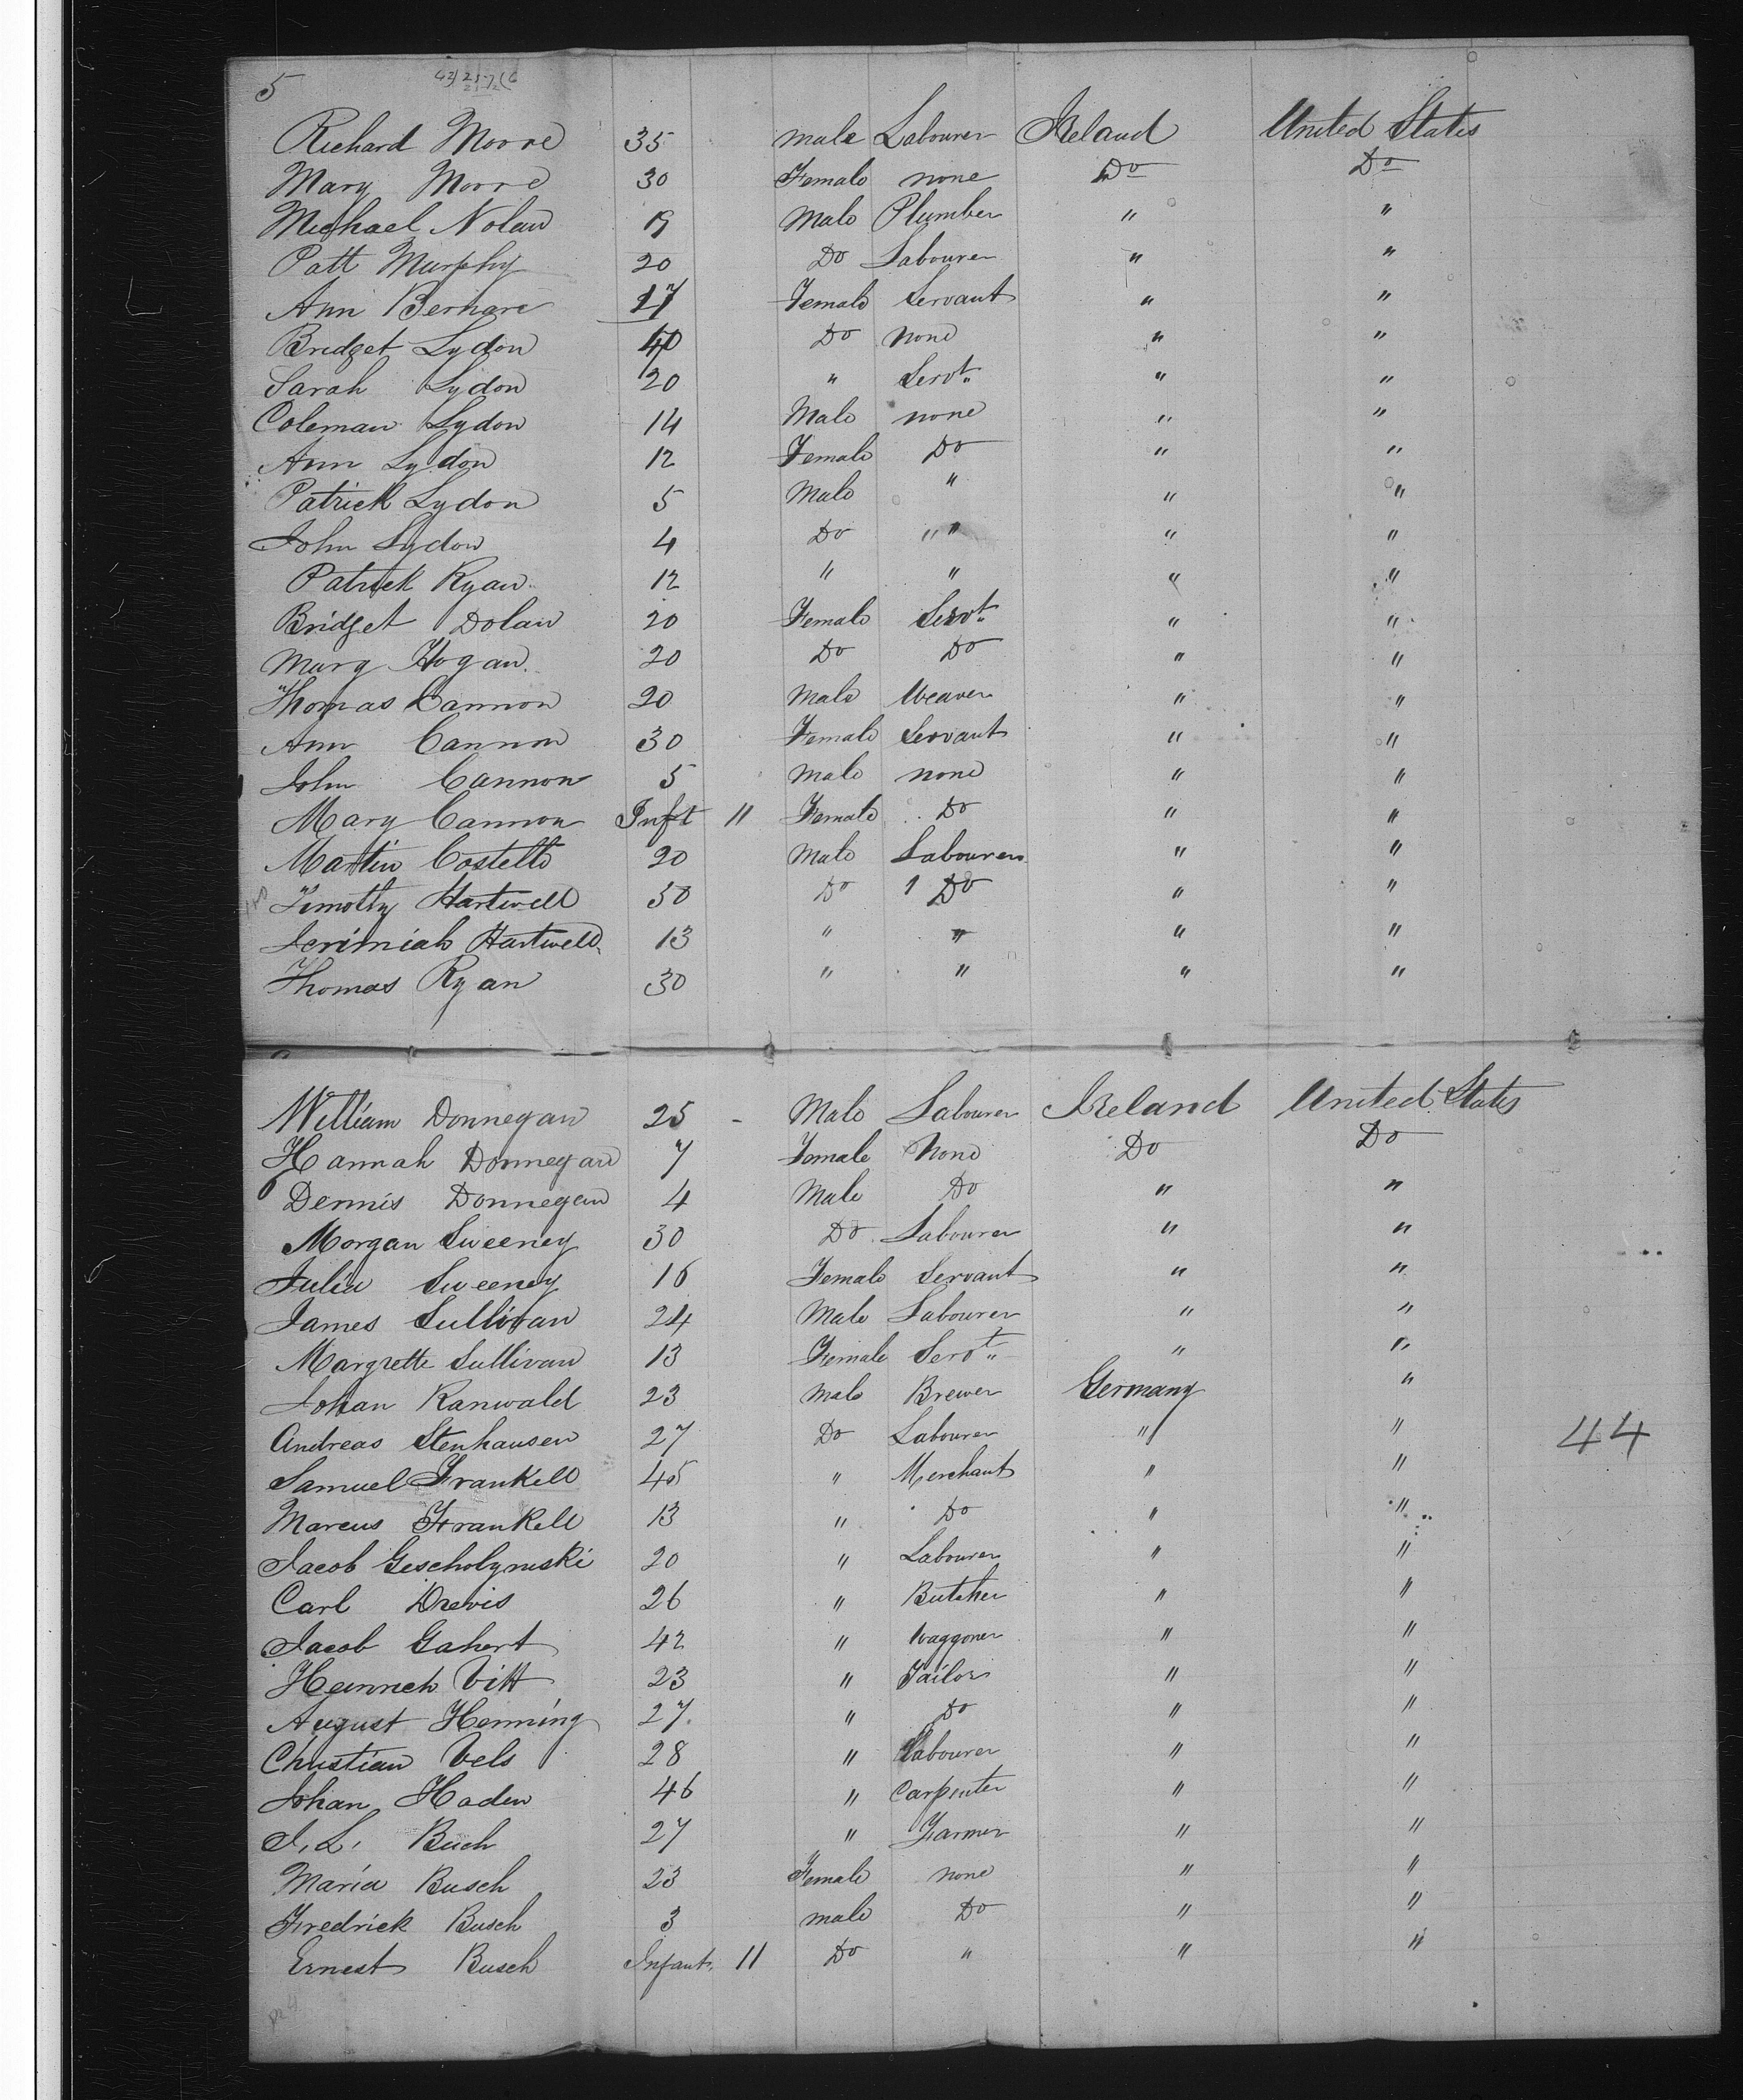 5
Richard Moore 35 male Labourer Ireland United States
Mary Moore 30 Female none Do Do
Michael Nolan 19 Male Plumber " "
Patt Murphy 20 Do Labourer " "
Ann 17 Female Servant " "
Bridget Lydon 40 Do none " "
Sarah Lydon 20 " Servt " "
Coleman Lydon 14 Male none " "
Ann Lydon 12 Female Do " "
Patrick Lydon 5 Male " " "
John Lydon 4 Do " " "
Patrick Ryan 12 " " " "
Bridget Dolan 20 Female Servt " "
Mary Hogan 20 Do Do " "
Thomas Cannon 20 Male Weaver " "
Ann Cannon 30 Female Servant " "
John Cannon 5 Male none " "
Mary Cannon Inft 11 Female Do " "
Martin Costello 20 Male Labourer " "
Timothy Hartwell 30 Do 1 Do " "
Jerimiah Hartwell 13 " " " "
Thomas Ryan 30 " " " "
William Donnegan 25 - Male Labourer Ireland United States
Hannah Donnegan 7 Female None Do Do
Dennis Donnegan 4 Male Do " "
Morgan Sweeney 30 Do Labourer " "
Julia Sweeney 16 Female Servant " "
James Sullivan 24 Male Labourer " "
Margrette Sullivan 13 Female Servt " "
Johan Ranwald 23 Male Brewer Germany "
Andreas Stenhausen 27 Do Labourer " " 44
Samuel Frankell 45 " Merchant " "
Marcus Frankell 13 " Do " "
Jacob 20 " Labourer " "
Carl Drevis 26 " Butcher " "
Jacob Gahert 42 " Waggoner " "
Heinrich Vitt 23 " Tailor " "
August Henning 27 " Do " "
Christian Vels 28 " Labourer " "
Johan Haden 46 " Carpenter " "
J. L. Buch 27 " Farmer " "
Maria Busch 23 Female none " "
Fredrick Busch 3 male Do " "
Ernest Busch Infant 11 Do " " "